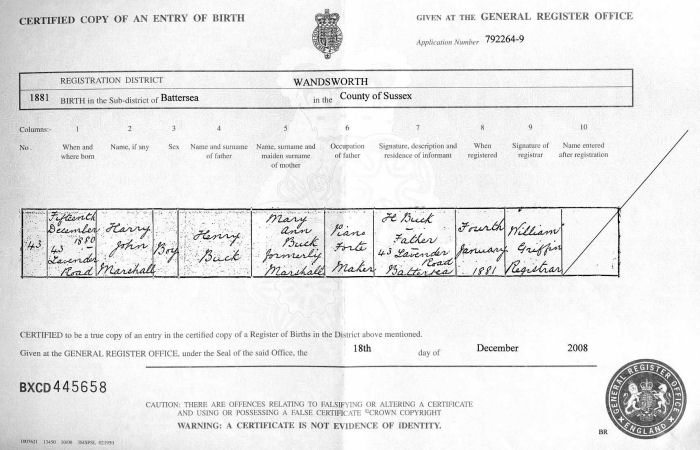 CERTIFIED COPY OF AN ENTRY OF BIRTH
GIVEN AT THE GENERAL REGISTER OFFICE
Application Number 792264-9
REGISTRATION DISTRICT WANDSWORTH
1881 BIRTH in the Sub-district of Battersea in the County of Sussex
Columns:- 1 2 3 4 5 6 7 8 9 10
No. When and where born Name, if any Sex Name and surname of father Name, surname and maiden surname of mother Occupation of father Signature, description and residence of informant When registered Signature of registrar Name entered after registration
43
Fifteenth
December
1880
43
Lavender
Road
Harry
John
Marshall
Boy
Henry
Buck
Mary
Ann
Buck
formerly
Marshall
Piano
Forte
Maker
H Buck
Father
43 Lavender
Road
Battersea
Fourth
January
1881
William
Griffin
Registrar
CERTIFIED to be a true copy of an entry in the certified copy of a Register of Births in the District above mentioned.
Given at the GENERAL REGISTER OFFICE, under the Seal of the said Office, the 18th day of December 2008
BXCD 445658
CAUTION: THERE ARE OFFENCES RELATING TO FALSIFYING OR ALTERING A CERTIFICATE
AND USING OR POSSESSING A FALSE CERTIFICATE ©CROWN COPYRIGHT
WARNING: A CERTIFICATE IS NOT EVIDENCE OF IDENTITY.
GENERAL REGISTER OFFICE
ENGLAND
BR